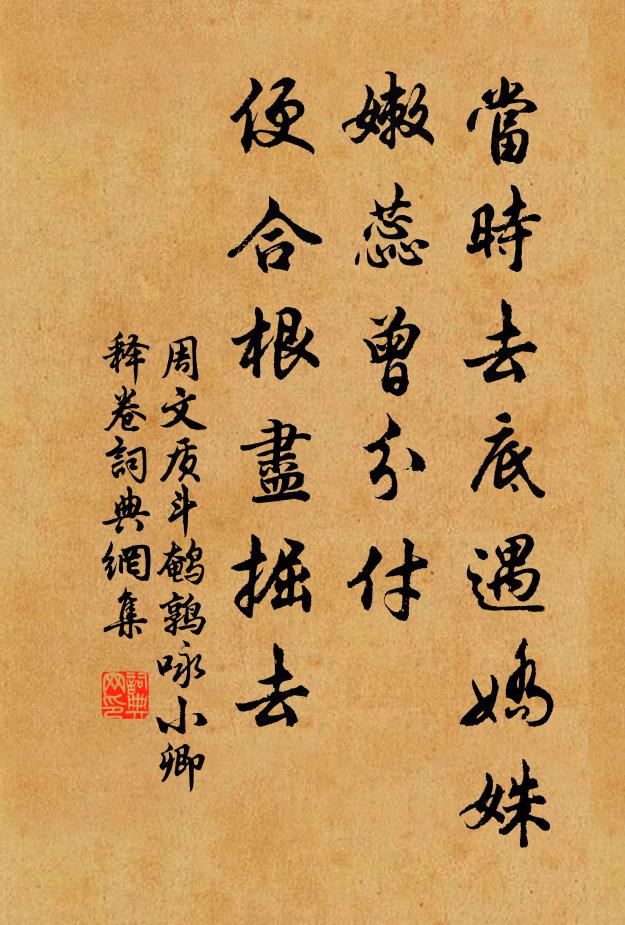 當時去底遇嬌姝
嫩蕊曾分付
便合根盡掘去
周文质斗鹌鹑咏小卿
释卷詞典網集
詞典网印